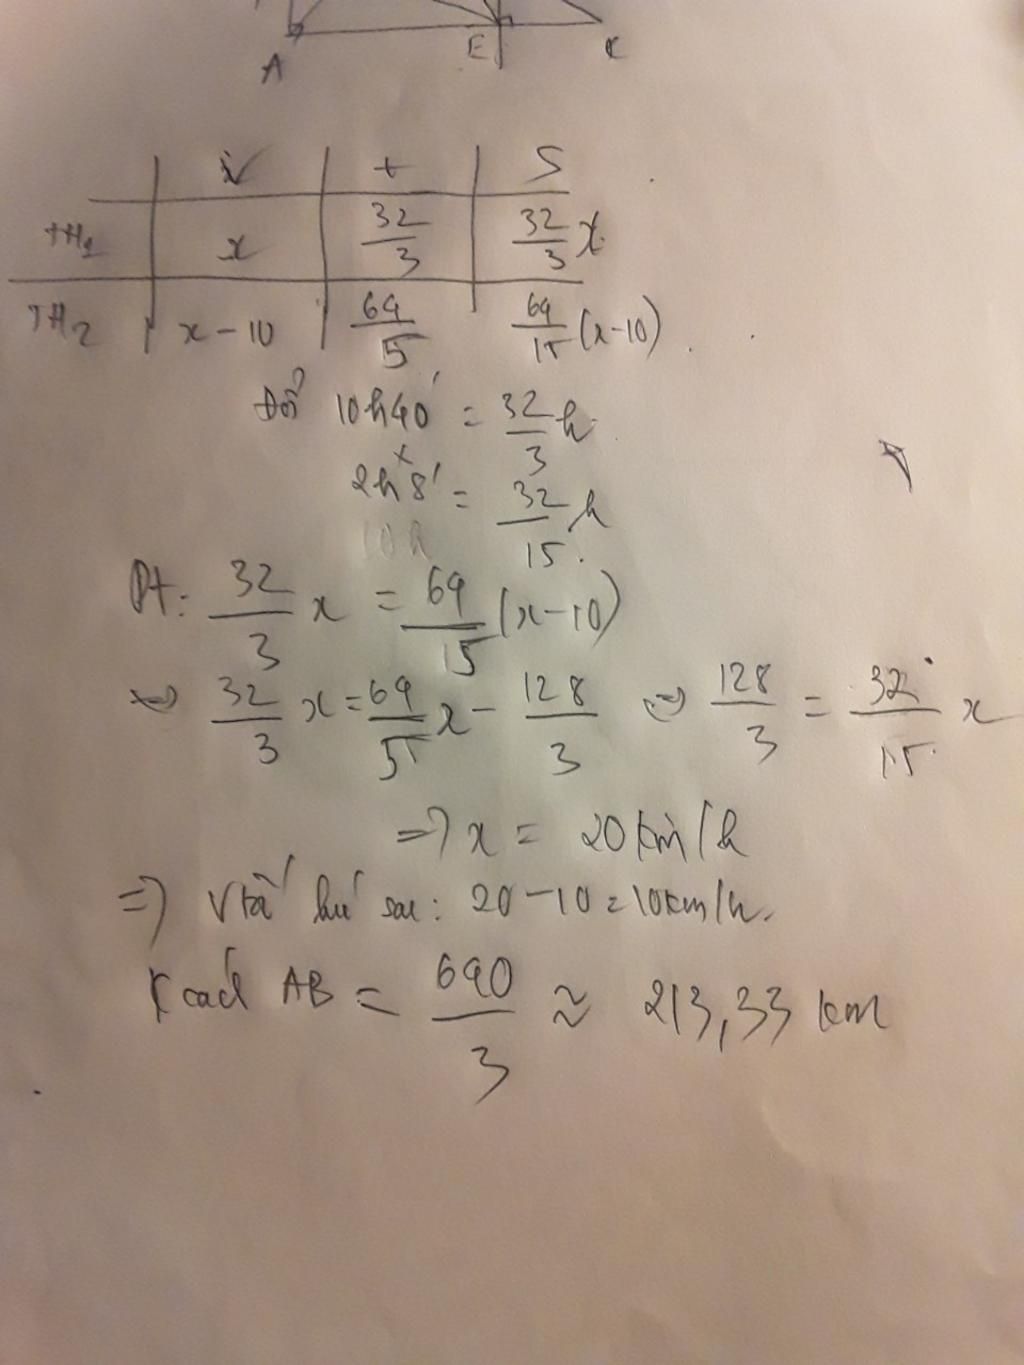 A E C
V t S
TH1 x 32/3 32/3 x
TH2 x-10 64/5 64/15 (x-10)
Đổi 10h40' = 32/3 h
2h8' = 32/15 h
10h
Pt: 32/3 x = 64/15 (x-10)
<=> 32/3 x = 64/5 x - 128/3 <=> 128/3 = 32/15 x
=> x = 20km/h
=> V tàu thứ sau: 20-10=10km/h.
K cách AB = 640/3 ≈ 213,33 km